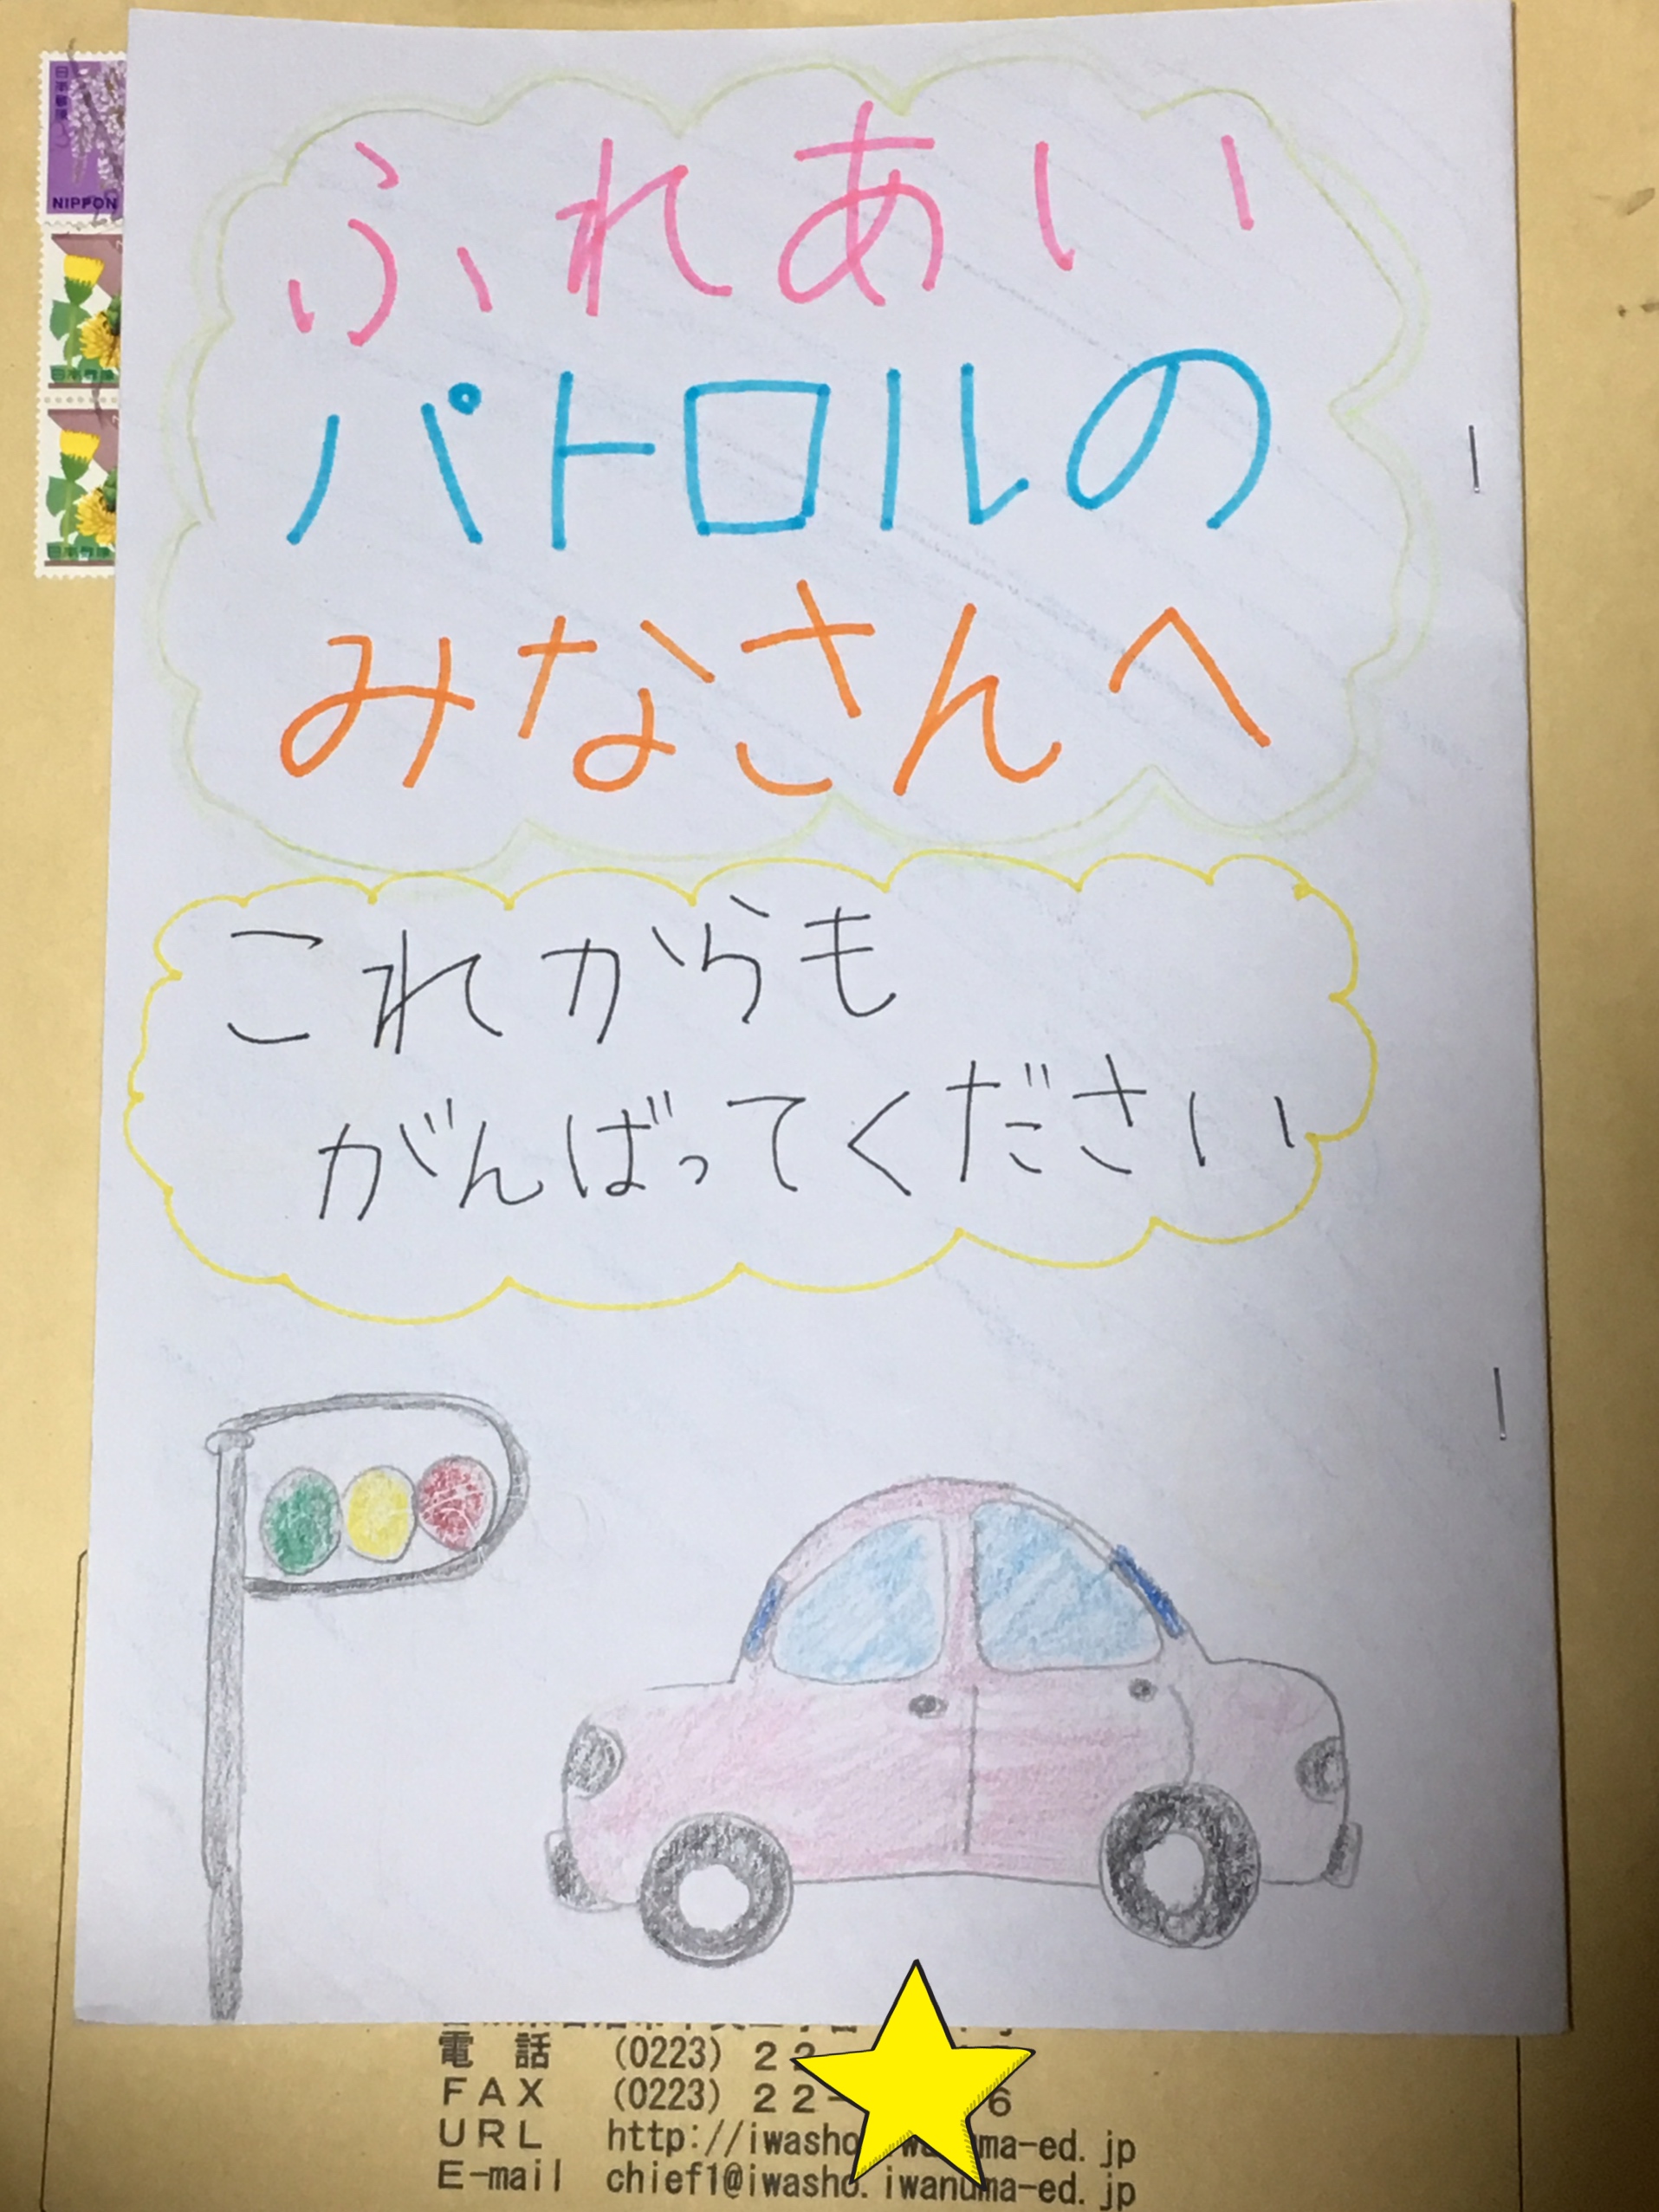 日本郵便
NIPPON
日本郵便
日本郵便
ふれあい
パトロルの
みなさんへ
これからも
がんばってください
電話 (0223) 22
FAX (0223) 22- 6
URL http://iwasho ma-ed.jp
E-mail chief1@iwasho.iwanuma-ed.jp